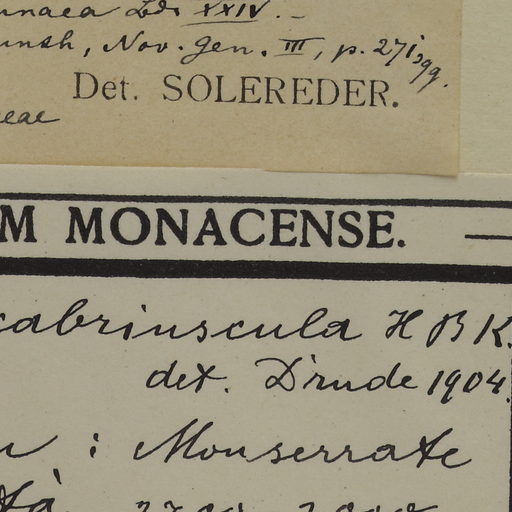 unth, Nov. Gen. III, p. 271, 299.
Det. SOLEREDER.
eae
M MONACENSE.
cabriuscula H B K.
det. Drude 1904.
: Monserrate